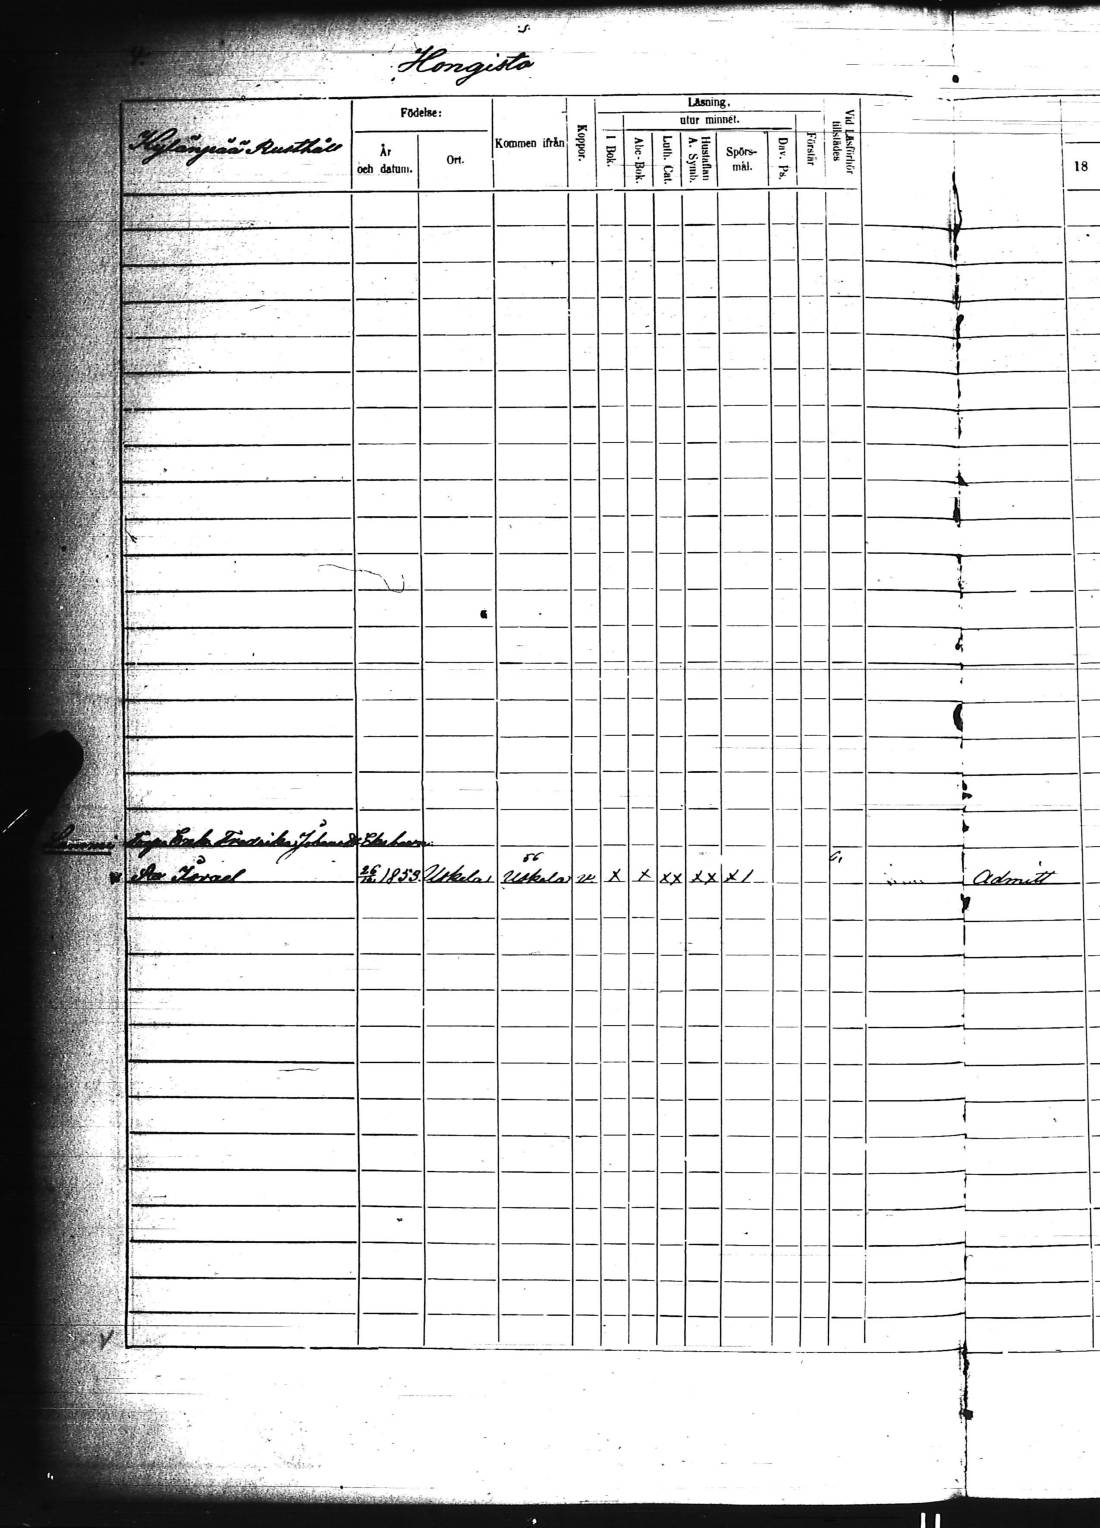 Hongisto
Kylänpää Rusthåll
Födelse:
År och datum.
Ort.
Kommen ifrån
Koppor.
Läsning,
utur minnet.
I Bok.
Abc-Bok.
Luth. Cat.
Hustaflan A. Symb.
Spörs-mål.
Dav. Ps.
Förstår
Vid Läsförhör tillstädes
18
Enka Fredrika
Israel 26/12 1853 Uskela 56 Uskela v x x xx xx x1 Admitt